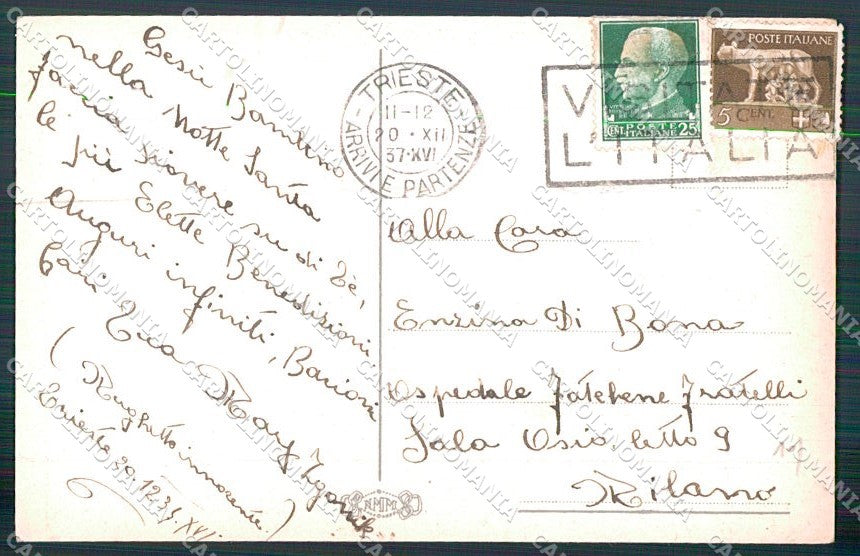 Gesù Bambino
nella Notte Santa
faccia piovere su di Te,
le più Elette Benedizioni
Auguri infiniti, Bacioni
Cari Tua Mary
(Rughetto innocente)
Trieste 20.12.37.XVI.
TRIESTE
11-12
20·XII
37·XVI
ARRIVI E PARTENZE
VISITATE
L'ITALIA
POSTE
ITALIANE
CENT. 25
POSTE ITALIANE
5 CENT.
Alla Cara
Enzina Di Bona
Ospedale Fatebene Fratelli
Sala Osio letto 9
Milano
NMM
CARTOLINOMANIA